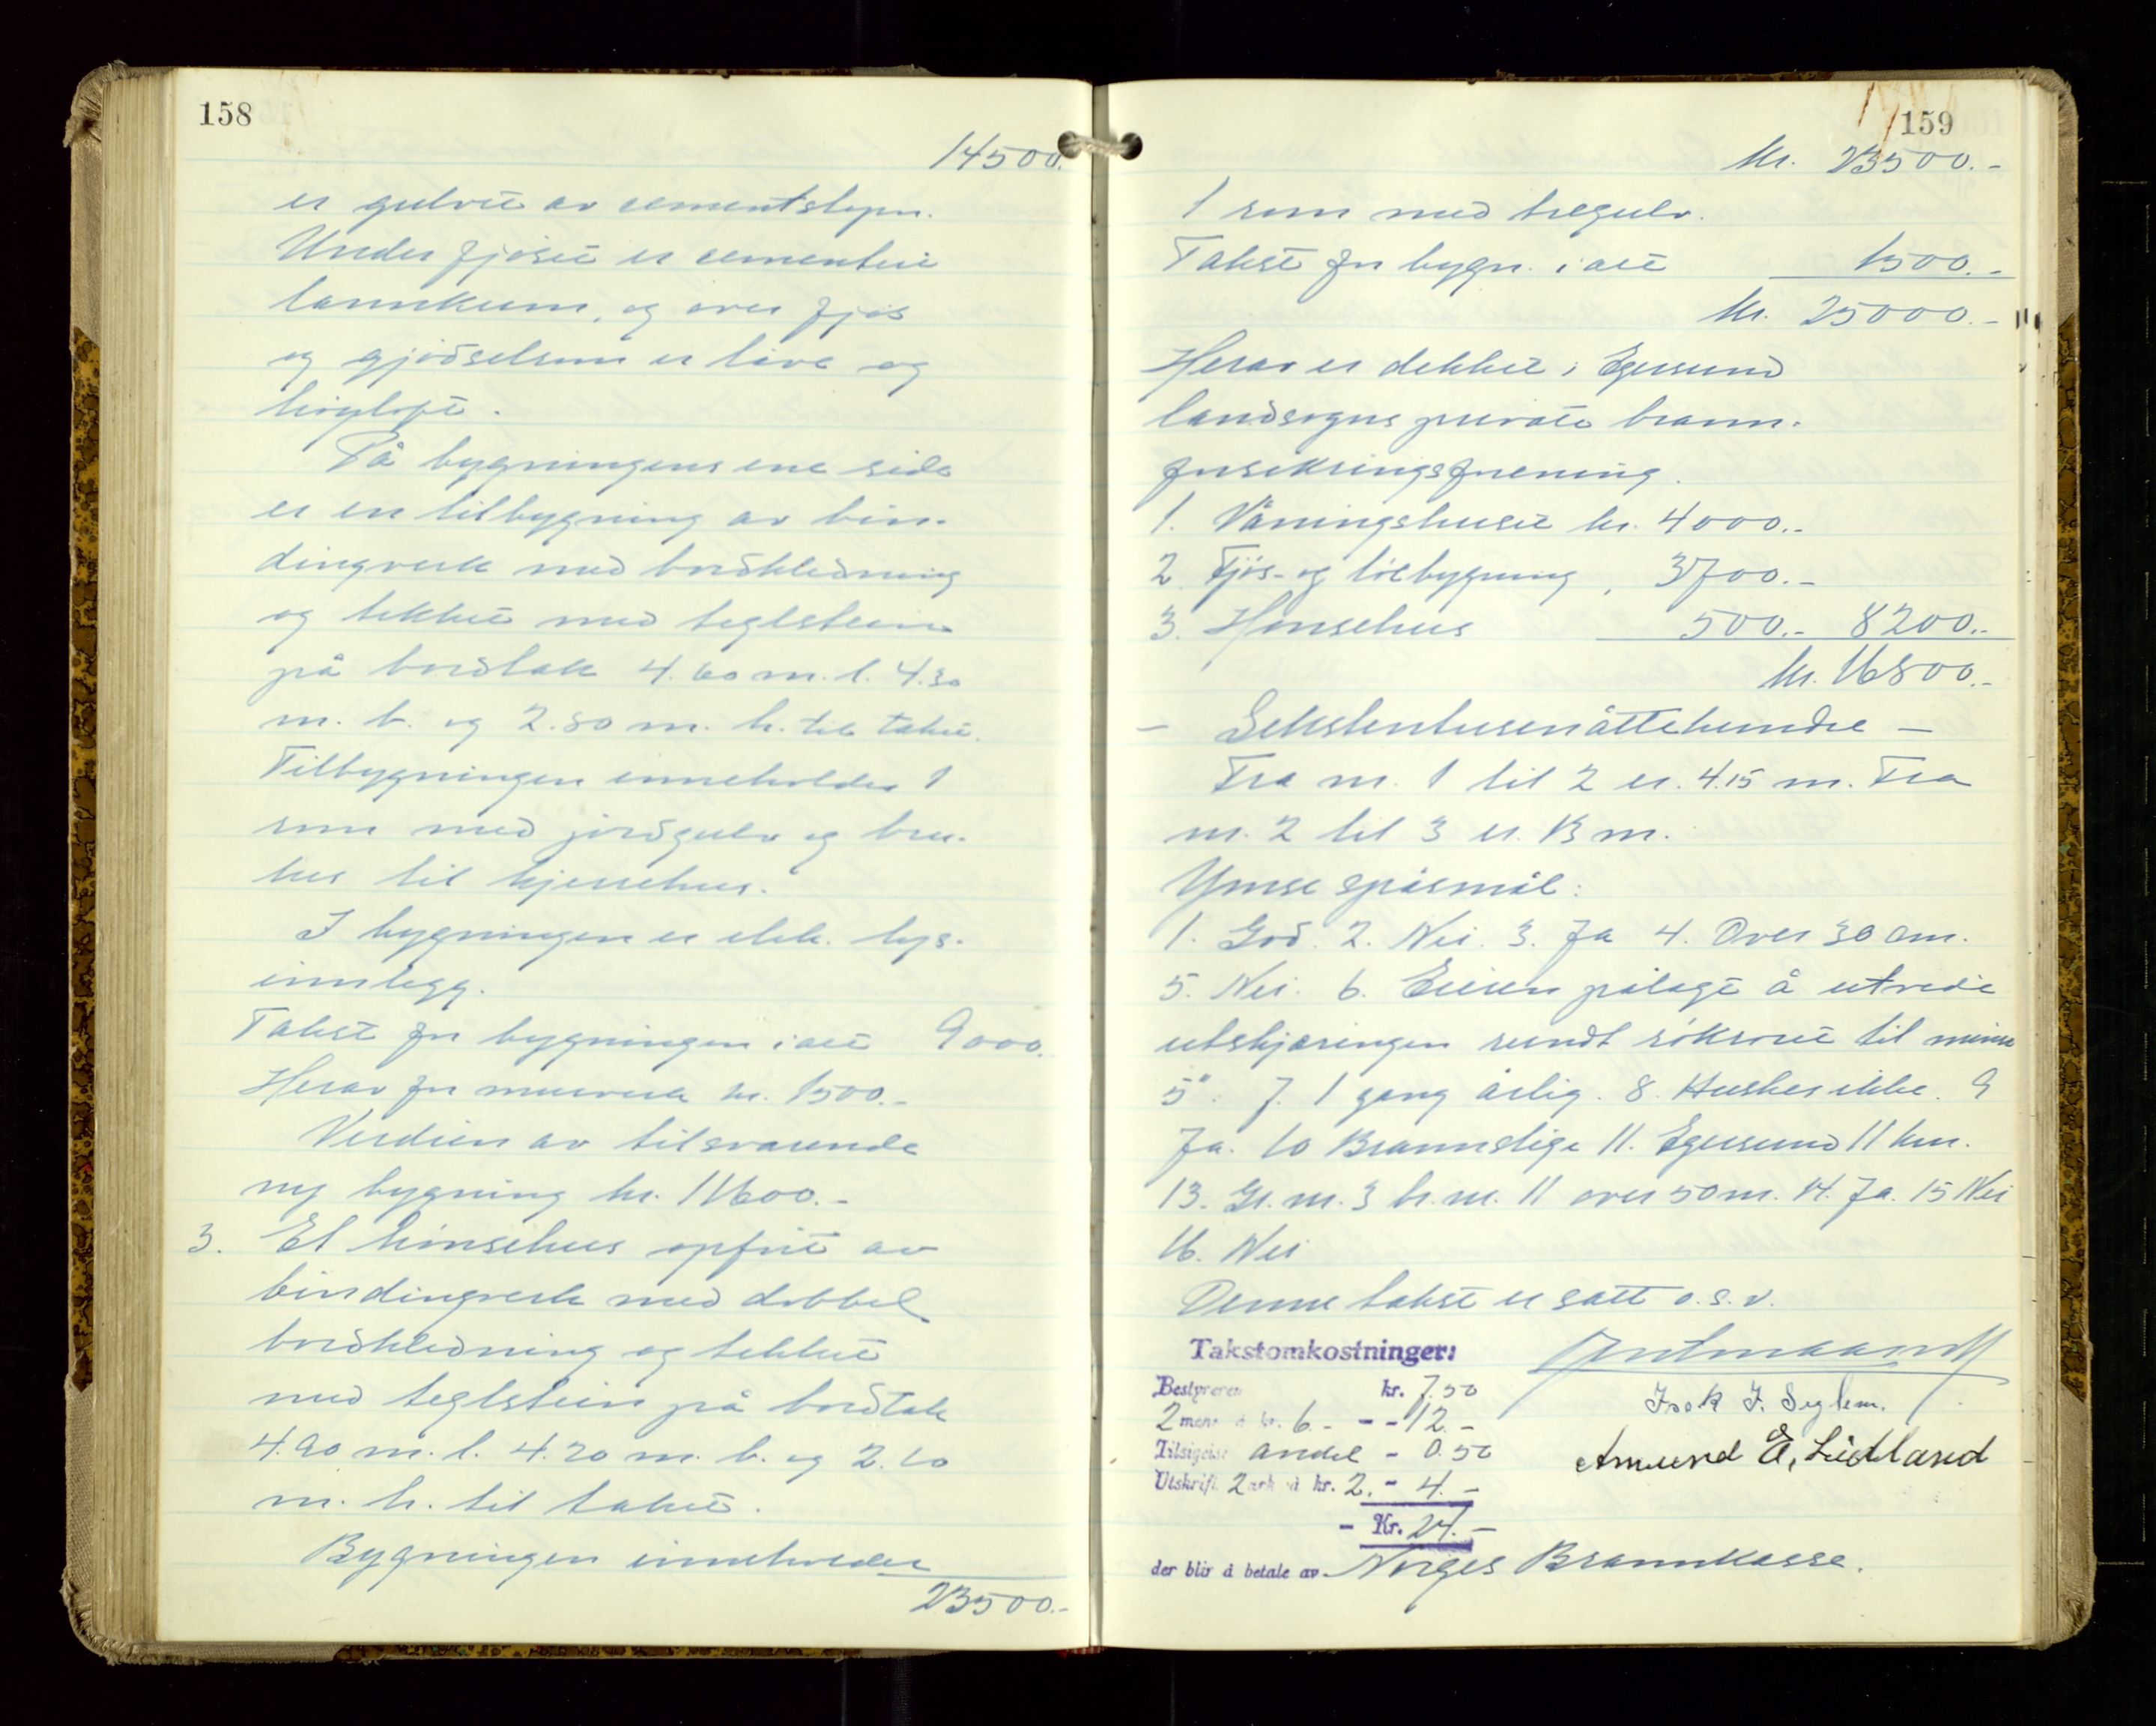 158
14500.
er gulvet av cementstøpn.
Under fjøset er cementert
lannkum, og over fjøs
og gjødselrum er låve og
høyloft.
På bygningens ene side
er en tilbygning av bin-
dingverk med bordkledning
og tekket med teglstein
på bordtak 4.60 m. l. 4.30
m. b. og 2.80 m. h. til taket.
Tilbygningen inneholder 1
rum med jordgulv og bru-
kes til kjerrehus.
I bygningen er elek. lys-
innlegg.
Takst for bygningen i alt 9000.
Herav for murverk kr. 1500.-
Verdien av tilsvarende
ny bygning kr. 11600.-
3. Et hønsehus opført av
bindingverk med dobbel
bordkledning og tekket
med teglstein på bordtak
4.90 m. l. 4.20 m. b. og 2.10
m. h. til taket.
Bygningen inneholder
23500.-
159
Kr. 23500.-
1 rum med tregulv.
Takst for bygn. i alt 1500.-
Kr. 25000.-
Herav er dekket i Egersund
landsogns private brann-
forsikringsforening.
1. Våningshuset kr. 4000.-
2. Fjøs- og løebygning " 3700.-
3. Hønsehus 500.- 8200.-
Kr. 16800.-
- Sekstentusenåttehundre -
Fra nr. 1 til 2 er 4.15 m. Fra
nr. 2 til 3 er 13 m.
Ymse spåsmål:
1. God. 2. Nei. 3. Ja 4. Over 30 cm.
5. Nei. 6. Eieren pålagt å utvide
utskjæringen rundt røkrøret til minst
5". 7. 1 gang årlig. 8. Huskes ikke. 9
Ja. 10 Brannstige 11. Egersund 11 km.
13. Gr. nr. 3 br. nr. 11 over 50 m. 14. Ja. 15 Nei
16. Nei
Denne takst er satt o.s.v.
Takstomkostninger:
Bestyreren kr. 7.50
2 menn à kr. 6.- - - 12.-
Tilsigelse andel - 0.50
Utskrift 2 ark à kr. 2.- 4.-
- Kr. 24.-
der blir å betale av Norges Brannkasse.
Isak I. Seglem.
Amund E. Lidland